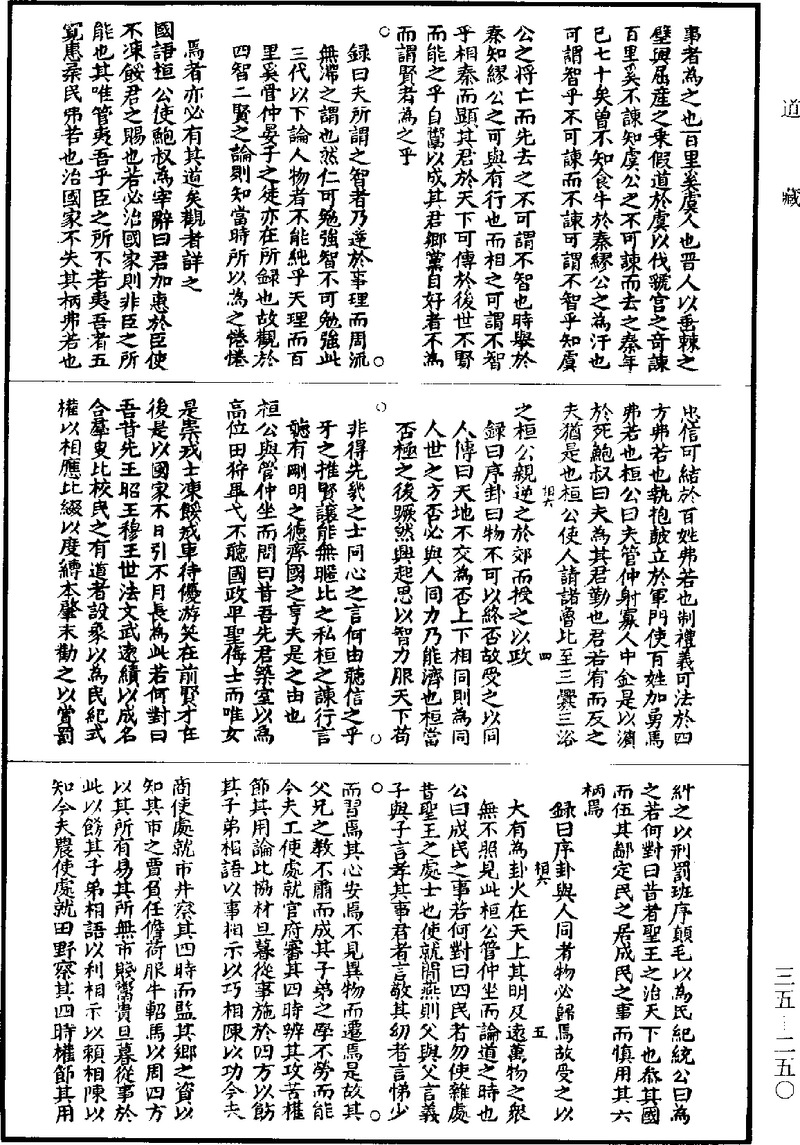 道藏
事者為之也百里奚虞人也晋人以垂棘之
璧與屈産之乗假道於虞以伐虢宫之奇諫
百里奚不諫知虞公之不可諫而去之秦年
已七十矣曽不知食牛於秦繆公之為汙也
可謂智乎不可諫而不諫可謂不智乎知虞
公之将亡而先去之不可謂不智也時舉於
秦知繆公之可與有行也而相之可謂不智
乎相秦而顯其君於天下可傳於後世不賢
而能之乎自鬻以成其君鄉黨自好者不為
而謂賢者為之乎
録曰夫所謂之智者乃達於事理而周流
無滯之謂也然仁可勉強智不可勉強此
三代以下論人物者不能純乎天理而百
里奚管仲晏子之徒亦在所録也故觀於
四智二賢之論則知當時所以為之惓惓
焉者亦必有其道矣觀者詳之
國語桓公使鮑叔為宰辭曰君加惠於臣使
不凍餒君之賜也若必治國家則非臣之所
能也其唯管夷吾乎臣之所不若夷吾者五
寛惠柔民弗若也治國家不失其柄弗若也
忠信可結於百姓弗若也制禮義可法於四
方弗若也執枹鼓立於軍門使百姓加勇焉
弗若也桓公曰夫管仲射寡人中鉤是以濱
於死鮑叔曰夫為其君勤也君若宥而反之
夫猶是也桓公使人請諸魯比至三釁三浴
之桓公親逆之於郊而授之以政
録曰序卦曰物不可以終否故受之以同
人傳曰天地不交為否上下相同則為同
人世之方否必與人同力乃能濟也桓當
否極之後蹶然興起思以智力服天下苟
非得先幾之士同心之言何由聽信之乎
牙之推賢讓能無暱比之私桓之諫行言
聽有剛明之德齊國之亨夫是之由也
桓公與管仲坐而問曰昔吾先君築室以為
高位田狩畢弋不聽國政卑聖侮士而唯女
是崇戎士凍餒戎車待優游笑在前賢才在
後是以國家不日引不月長為此若何對曰
吾昔先王昭王穆王世法文武逺績以成名
合羣叟比校民之有道者設象以為民紀式
權以相應比綴以度竱本肇末勸之以賞罰
糾之以刑罰班序顛毛以為民紀統公曰為
之若何對曰昔者聖王之治天下也叅其國
而伍其鄙定民之居成民之事而慎用其六
柄焉
録曰序卦與人同者物必歸焉故受之以
大有為卦火在天上其明及逺萬物之衆
無不照見此桓公管仲坐而論道之時也
公曰成民之事若何對曰四民者勿使雜處
昔聖王之處士也使就閒燕則父與父言義
子與子言孝其事君者言敬其幼者言悌少
而習焉其心安焉不見異物而遷焉是故其
父兄之教不肅而成其子弟之學不勞而能
今夫工使處就官府審其四時辨其攻苦權
節其用論比恊材旦暮從事施於四方以飭
其子弟相語以事相示以巧相陳以功今夫
商使處就市井察其四時而監其鄉之資以
知其市之賈負任儋荷服牛軺馬以周四方
以其所有易其所無市賤鬻貴旦暮從事於
此以飭其子弟相語以利相示以頼相陳以
知今夫農使處就田野察其四時權節其用
三五—二五〇